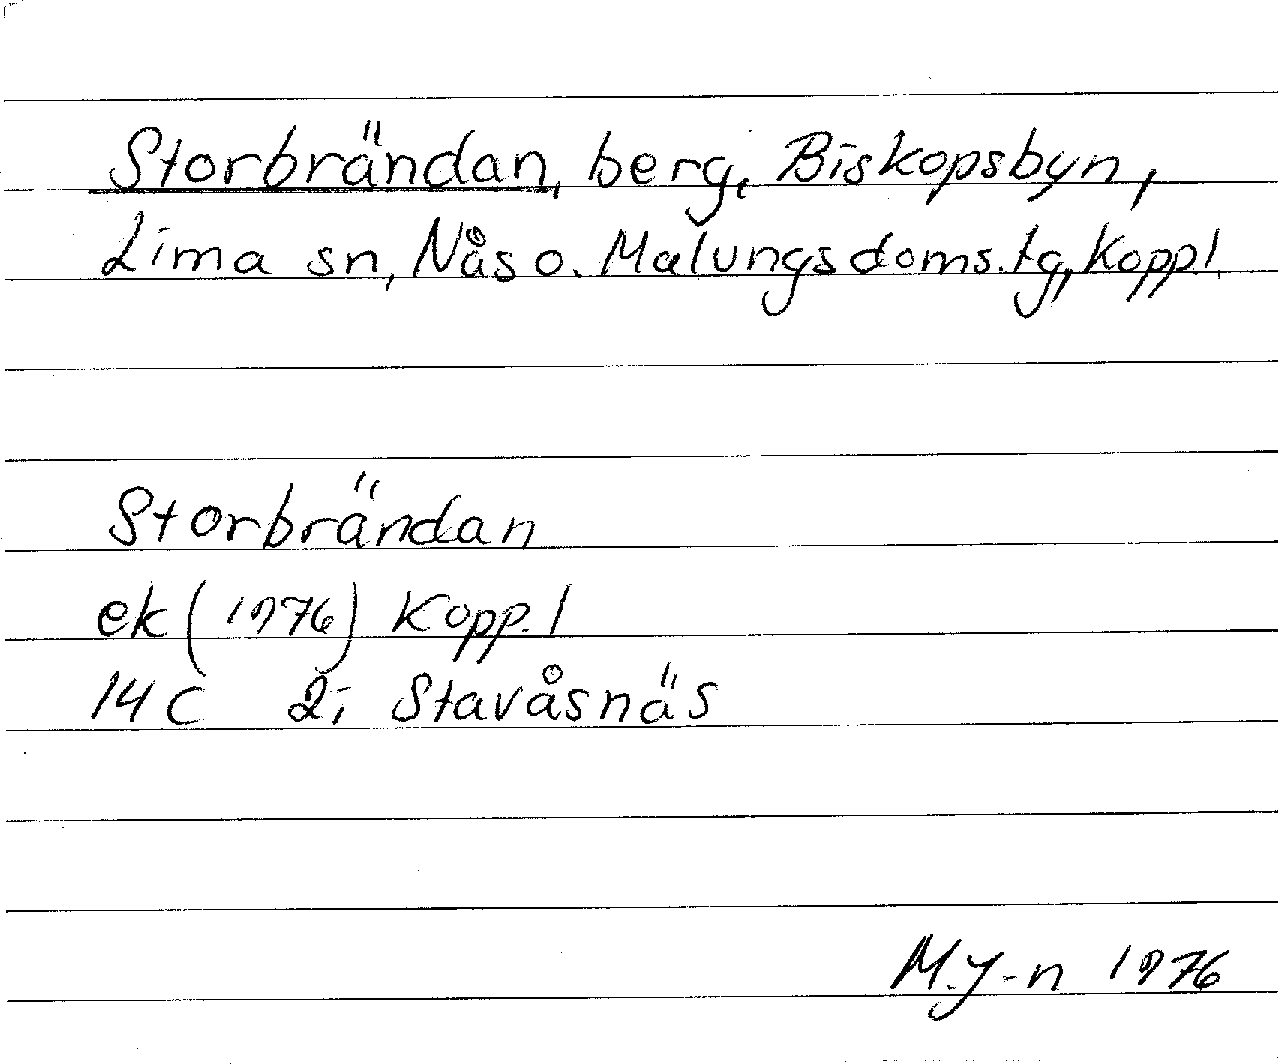 Storbrändan, berg, Biskopsbyn,
Lima sn, Nås o. Malungs doms.tg, Koppl.
Storbrändan
ek (1976) Kopp.l
14 C 2i Stavåsnäs
M.J-n 1976